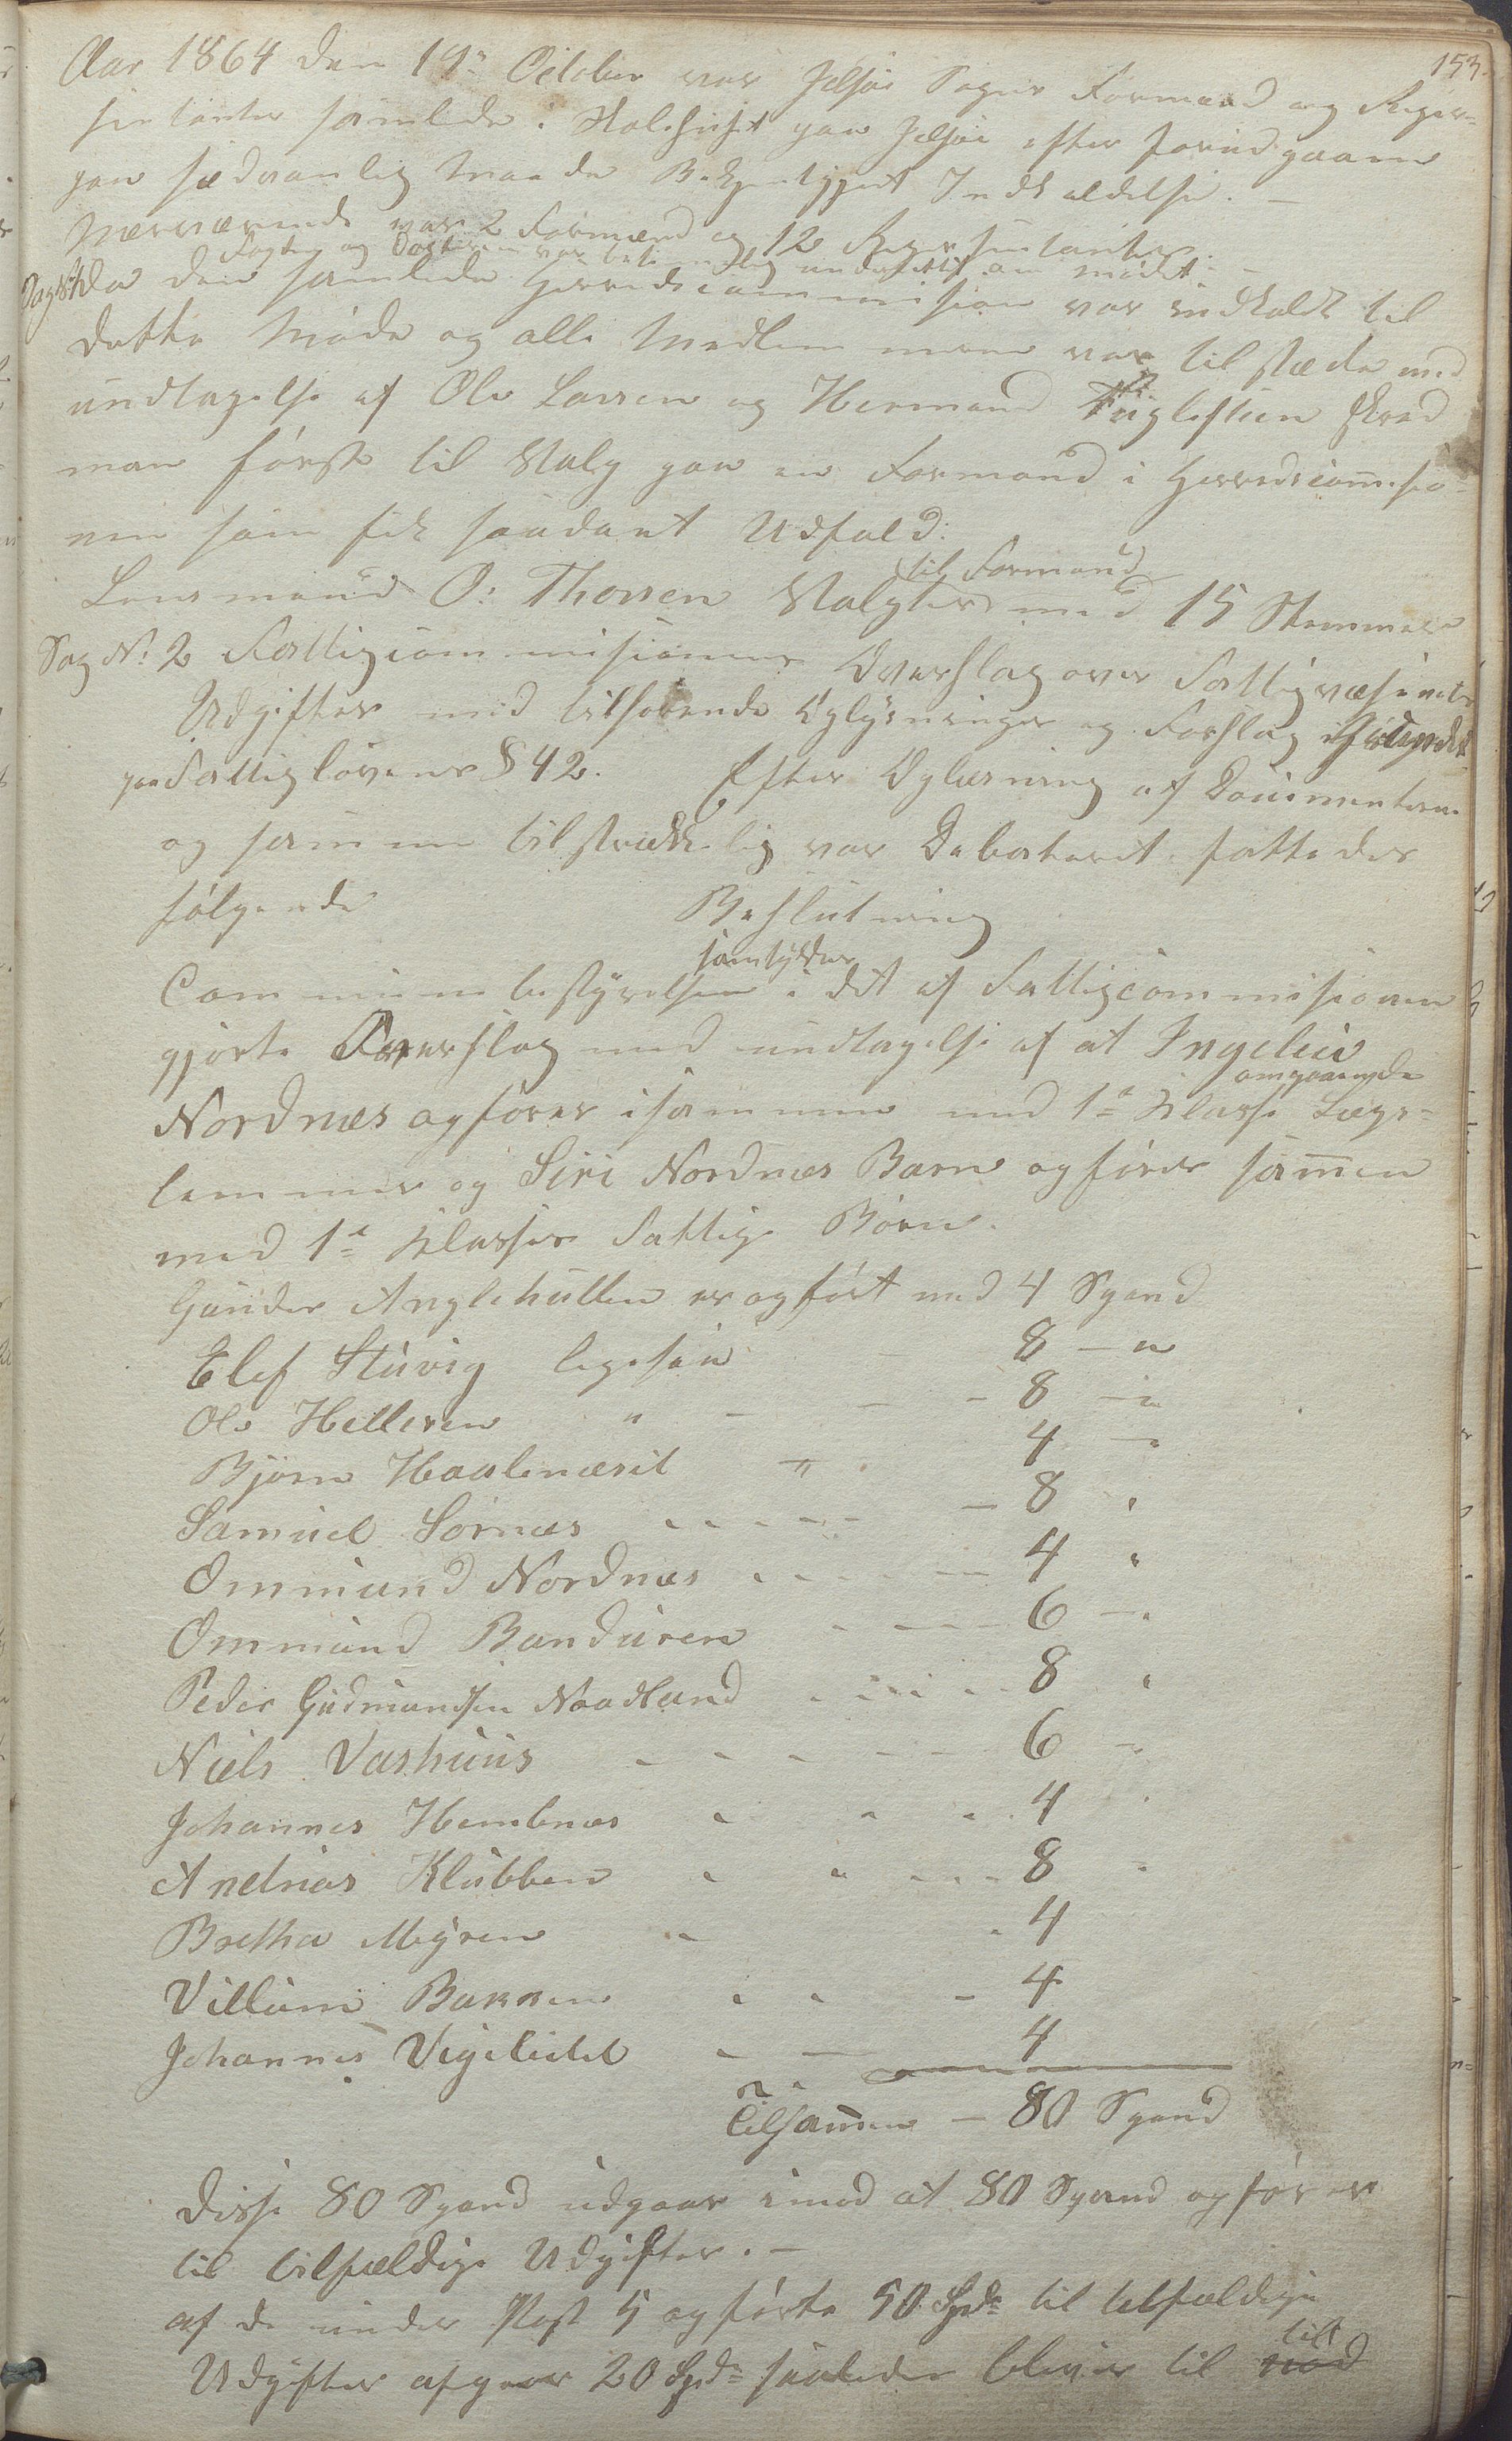 153.
Aar 1864 den 19de October var Jelsøe Sogns Formænd og Repræ-
sentanter samlede i Skolehuset paa Jelsøe efter foregaaende
paa sædvanlig Maade Bekjentgjort Indkaldelse. –
Nærværende var 2 Formænd og 12 Repræsentanter.
Fogten og Doctoren var betimelig underrettet om mødet. –
Sag No 1 Da den samlede Herredscommission var indkaldt til
dette Møde og alle Medlemmerne var tilstæde med
undtagelse af Ole Larsen og Hermand Fuglestein skred
man først til Valg paa en Formand i Herredscom̄isio-
nen som fik saadant Udfald:
Lensmand O: Thorsen Valgtes til Formand med 15 Stemmer
Sag No 2 Fattigcommissionens Overslag over Fattigvæsenets
Udgifter med tilhørende Oplysninger og Forslag grundet
paa Fattiglovens § 42. Efter Oplæsning af Documenterne
og samme tilstrækkelig var Debateret fattedes
følgende Beslutning
Communebestyrelsen samtykker i det af Fattigcommissionen
gjorte Overslag med undtagelse af at Ingeleiv
Nordnæs opføres isammen med 1te Klasse omgaaende Lægs-
lemmer og Siri Nordnæs Barn opføres sam̄en
med 1te Klasses Fattige Børn.
Gunder Anglehullen er opført med 4 Spand
Elef Stuvig ligesaa – 8 – "
Ole Helleren " – – – 8 – "
Bjørn Haalenæsit " . 4 – "
Samuel Sørnæs - - - - - – 8 "
Ommund Nordnæs - - - - – 4 "
Ommund Banduren - - – – 6 – "
Peder Gudmundsen Naadland - - - - - 8 "
Niels Vashuus - - - - - – 6 – "
Johannes Hembnæs - - - 4 "
Andreas Klubben - " - - - 8 -
Bretha Myren - - 4
Villum Bakken - - – 4
Johannes Vigeleitet - – 4
Tilsam̄en – 80 Spand
Disse 80 Spand udgaar imod at 80 Spand opføres
til tilfældige Udgifter. –
af de under Post 5 opførte 50 Spd: til tilfældige
Udgifter afgaar 20 Spd: saaledes bliver til